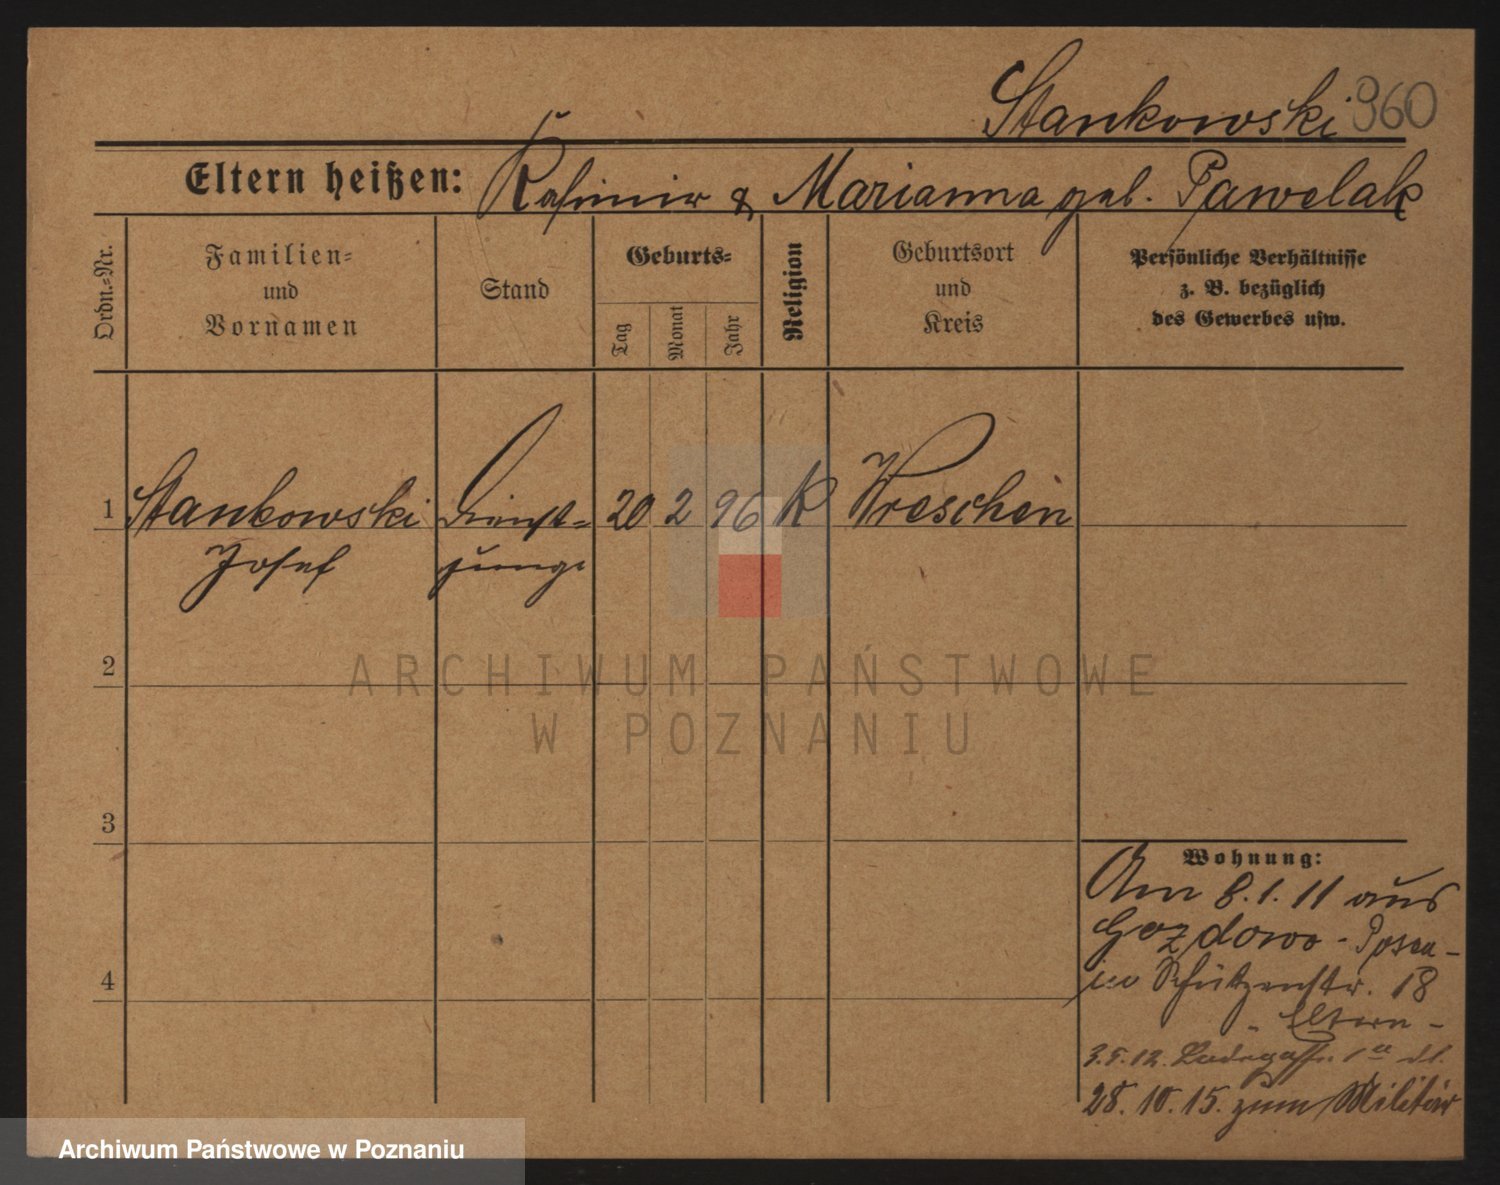 Stankowski 960
Eltern heißen: Kasimir & Marianna geb. Pawelak
Ordn.=Nr.
Familien=
und
Vornamen
Stand
Geburts=
Tag
Monat
Jahr
Religion
Geburtsort
und
Kreis
Persönliche Verhältnisse
z. B. bezüglich
des Gewerbes usw.
1 Stankowski Dienst= 20 2 96 K Wreschen
Josef junge
2
3
4
Wohnung:
Am 8.1.11 aus
Gozdowo - Posen -
in Schützenstr. 18
- Eltern -
3.5.12. Badegasse 1a
28.10.15. zum Militär
ARCHIWUM PAŃSTWOWE
W POZNANIU
Archiwum Państwowe w Poznaniu